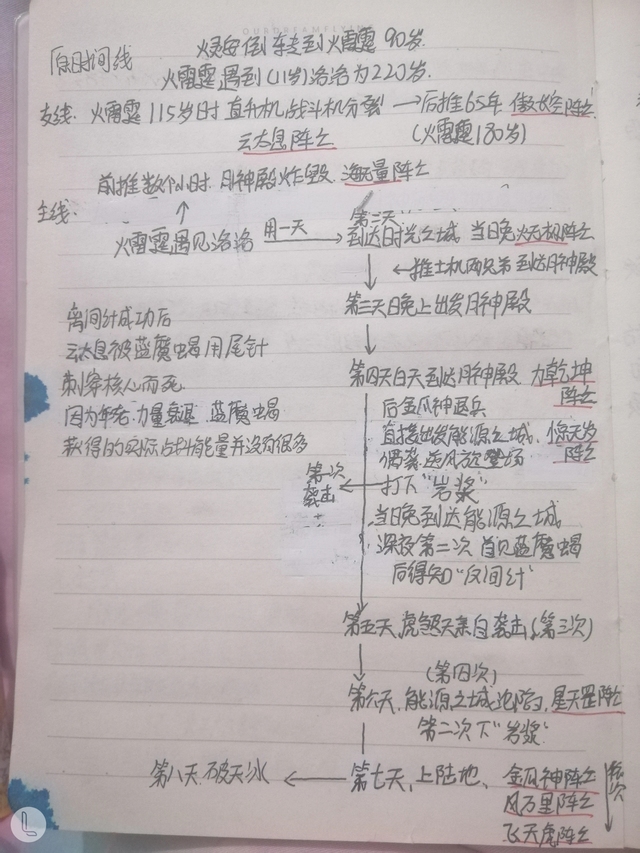 OURDREAMFLYING
原时间线
火绿宝倒转到火雷霆90岁.
火雷霆遇到(11岁)洛洛为220岁.
支线. 火雷霆115岁时直升机战斗机分裂 → 后推65年 傲长空阵亡
云太息阵亡
(火雷霆180岁)
前推数个小时. 月神殿炸毁. 海无量阵亡
主线. ↑
火雷霆遇见洛洛 用一天 →
第二天
到达时光之城 当日晚火无机阵亡
↓ ←推土机两兄弟到达月神殿
第三天晚上出发月神殿
↓
第四天白天到达月神殿 力乾坤
阵亡
后金爪神退兵
直接出发能源之城. 惊天岁
阵亡
偶袭. 逆风
登场
第一次
袭击
← 打下"岩浆"
当日晚到达能源之城
深夜第二次 首见蓝魔蝎
后得知"反间计"
离间计成功后
云太息被蓝魔蝎用尾针
刺穿核心而死
因为年老. 力量衰退. 蓝魔蝎
获得的实际占卦能量并没有很多
第五天, 虎煞天亲自袭击(第三次)
↓
(第四次)
第六天. 能源之城沦陷, 星天罡阵亡
第二次下"岩浆"
第七天, 上陆地. 金爪神阵亡
风万里阵亡
飞天虎阵亡
依次
第八天. 破天冰 ←